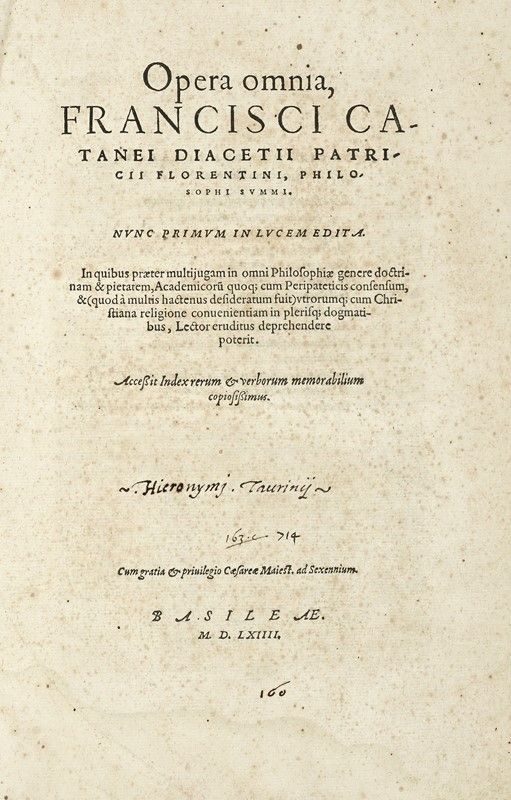 Opera omnia,
FRANCISCI CA-
TANEI DIACETII PATRI-
CII FLORENTINI, PHILO-
SOPHI SVMMI.
NVNC PRIMVM IN LVCEM EDITA.
In quibus præter multijugam in omni Philosophiæ genere doctri-
nam & pietatem, Academicorū quoq; cum Peripateticis consensum,
&(quod à multis hactenus desideratum fuit)vtrorumq; cum Chri-
stiana religione conuenientiam in plerisq; dogmati-
bus, Lector eruditus deprehendere
poterit.
Accessit Index rerum & verborum memorabilium
copiosissimus.
~. Hieronymj. Taurinij ~
714
Cum gratia & priuilegio Cæsareæ Maiest. ad Sexennium.
BASILEAE.
M. D. LXIIII.
160